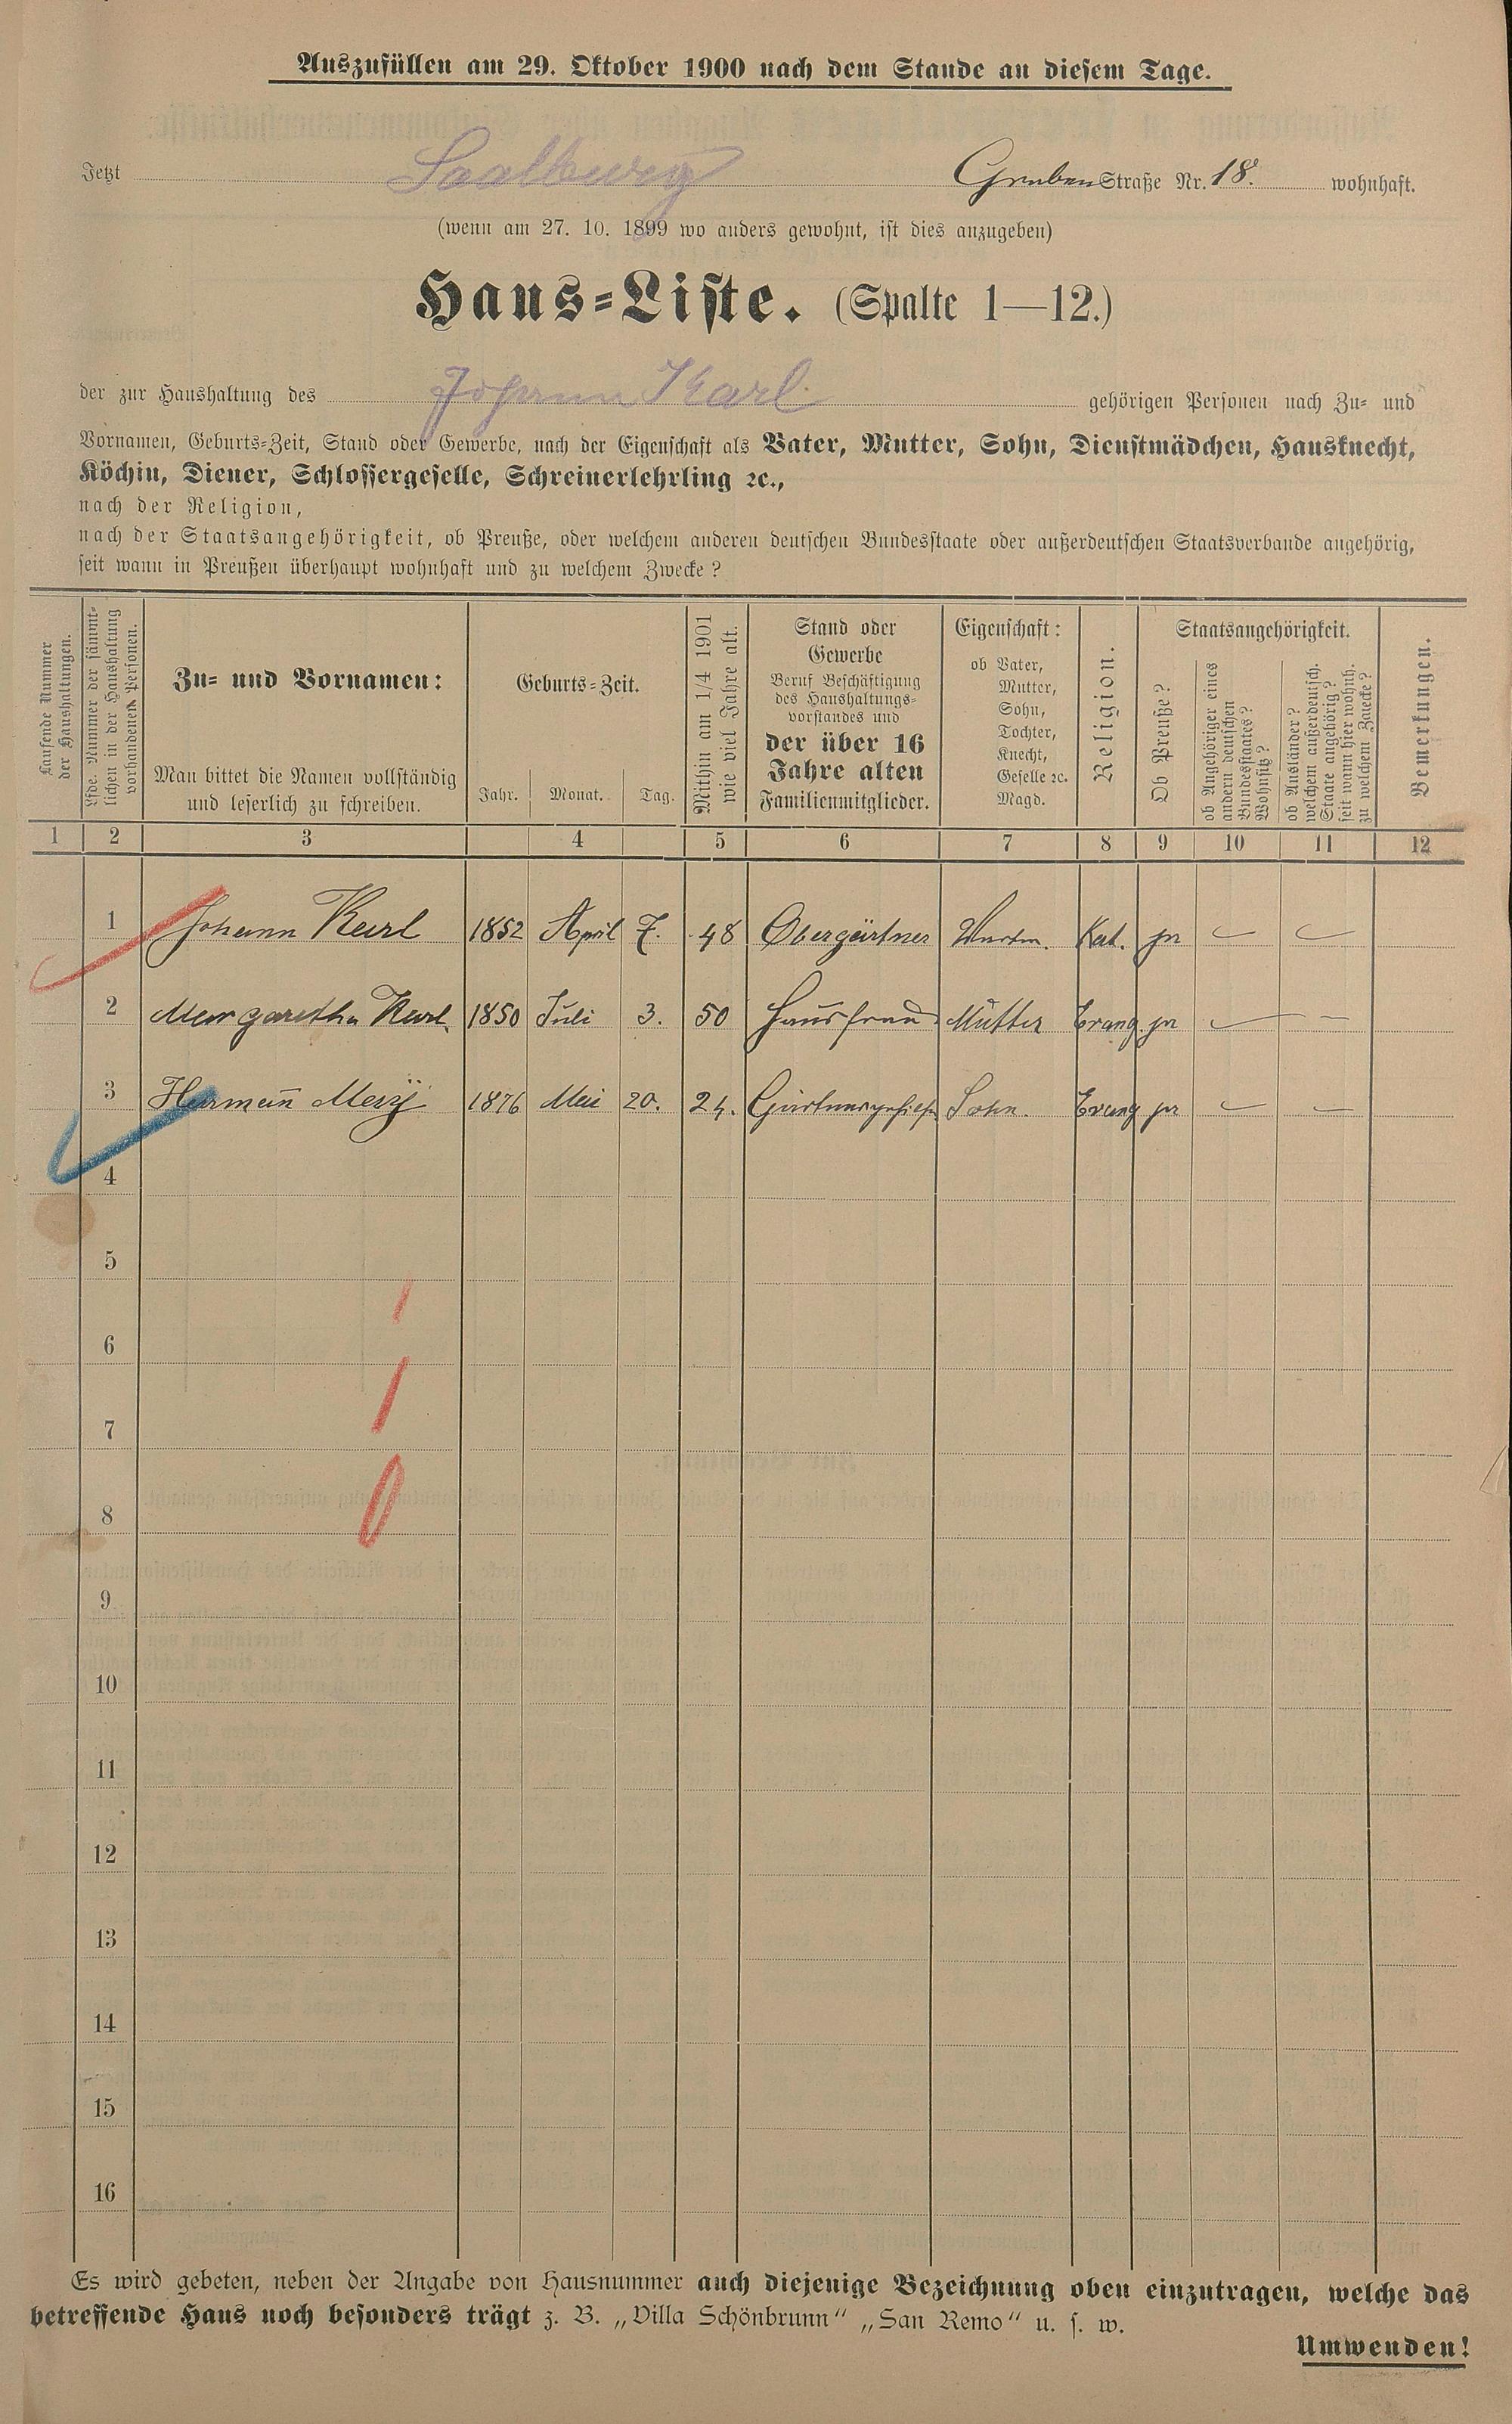 Auszufüllen am 29. Oktober 1900 nach dem Stande an diesem Tage.
Jetzt Saalburg Gruben Straße Nr. 18. wohnhaft.
(wenn am 27. 10. 1899 wo anders gewohnt, ist dies anzugeben)
Haus=Liste. (Spalte 1—12.)
der zur Haushaltung des Johann Karl gehörigen Personen nach Zu= und
Vornamen, Geburts=Zeit, Stand oder Gewerbe, nach der Eigenschaft als Vater, Mutter, Sohn, Dienstmädchen, Hausknecht,
Köchin, Diener, Schlossergeselle, Schreinerlehrling ꝛc.,
nach der Religion,
nach der Staatsangehörigkeit, ob Preuße, oder welchem anderen deutschen Bundesstaate oder außerdeutschen Staatsverbande angehörig,
seit wann in Preußen überhaupt wohnhaft und zu welchem Zwecke?
Laufende Nummer
der Haushaltungen.
Lfde. Nummer der sämmt=
lichen in der Haushaltung
vorhandenen Personen.
Zu= und Vornamen:
Man bittet die Namen vollständig
und leserlich zu schreiben.
Geburts=Zeit.
Jahr. Monat. Tag.
Mithin am 1/4 1901
wie viel Jahre alt.
Stand oder
Gewerbe
Beruf Beschäftigung
des Haushaltungs=
vorstandes und
der über 16
Jahre alten
Familienmitglieder.
Eigenschaft:
ob Vater,
Mutter,
Sohn,
Tochter,
Knecht,
Geselle ꝛc.
Magd.
Religion.
Staatsangehörigkeit.
Ob Preuße?
ob Angehöriger eines
andern deutschen
Bundesstaates?
Wohnsitz?
ob Ausländer?
welchem außerdeutsch.
Staate angehörig?
seit wann hier wohnh.
zu welchem Zwecke?
Bemerkungen.
1 2 3 4 5 6 7 8 9 10 11 12
1 Johann Karl 1852 April 7. 48 Obergärtner Kat. ja — —
2 Margaretha Karl 1850 Juli 3. 50 Hausfrau Mutter Evang. ja — —
3 Hermann 1876 Mai 20. 24. Sohn. Evang ja — —
4
5
6
7
8
9
10
11
12
13
14
15
16
Es wird gebeten, neben der Angabe von Hausnummer auch diejenige Bezeichnung oben einzutragen, welche das
betreffende Haus noch besonders trägt z. B. „Villa Schönbrunn“ „San Remo“ u. s. w.
Umwenden!